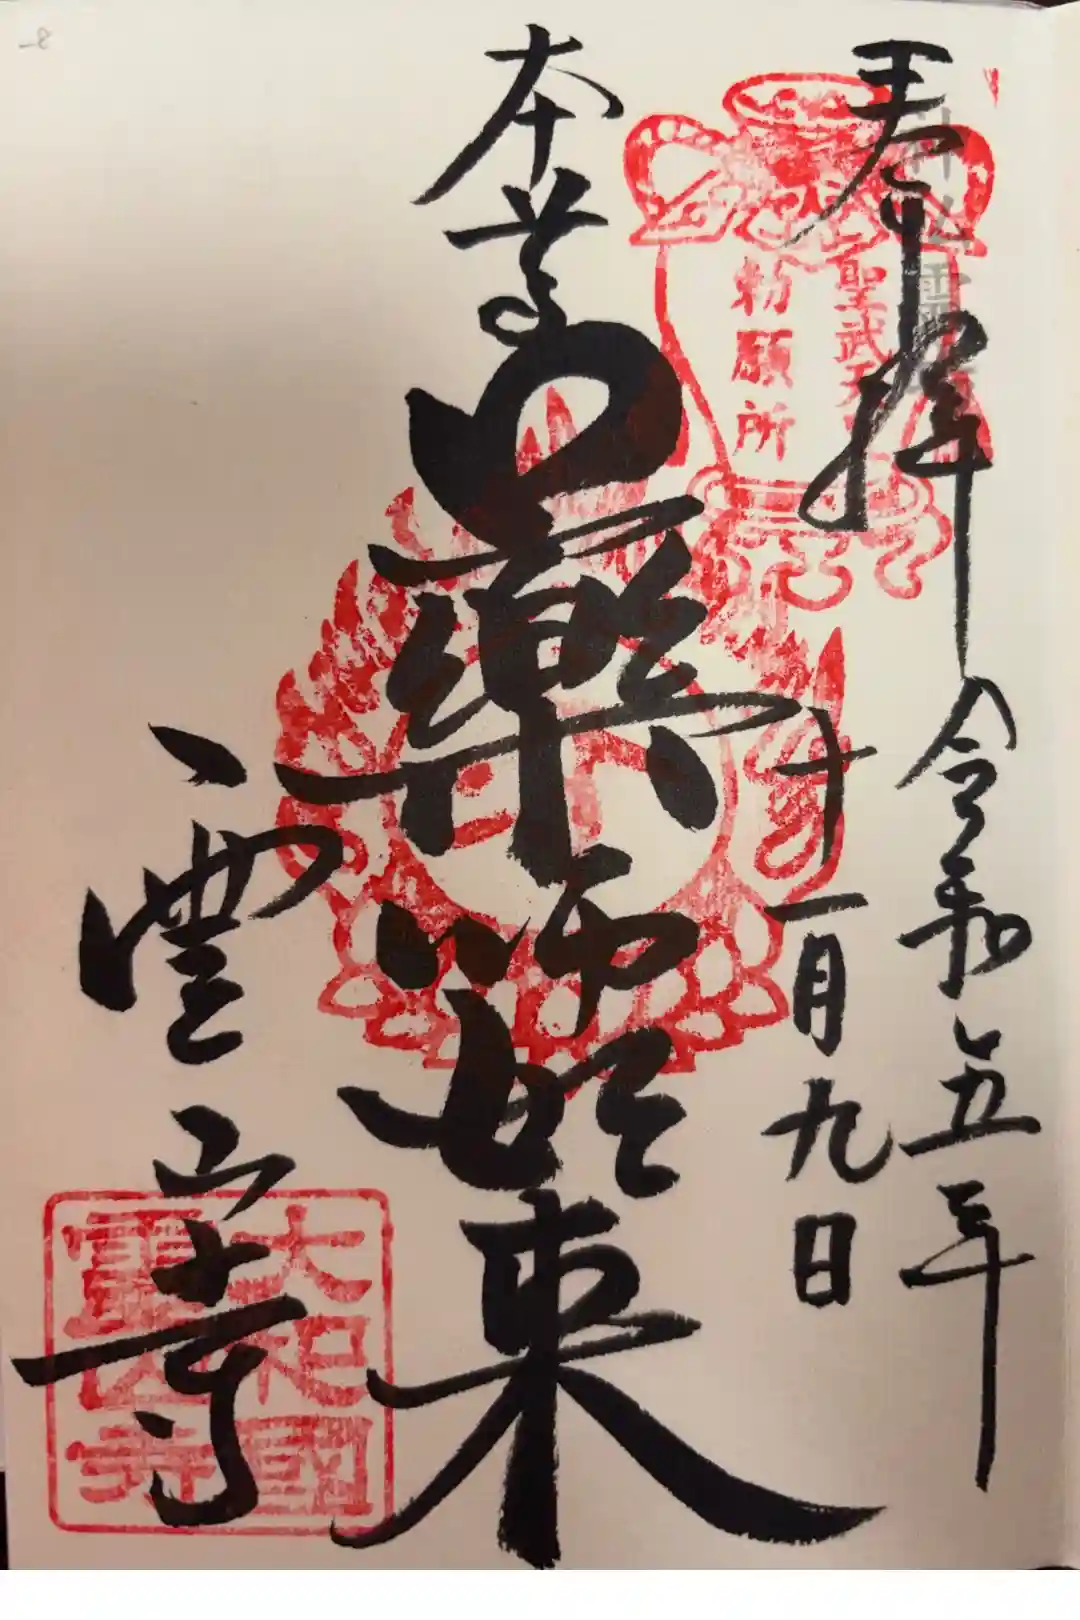 奉拝
令和五年
十一月九日
聖武天
勅願所
本尊
薬師如来
霊山寺
大和國
霊山寺